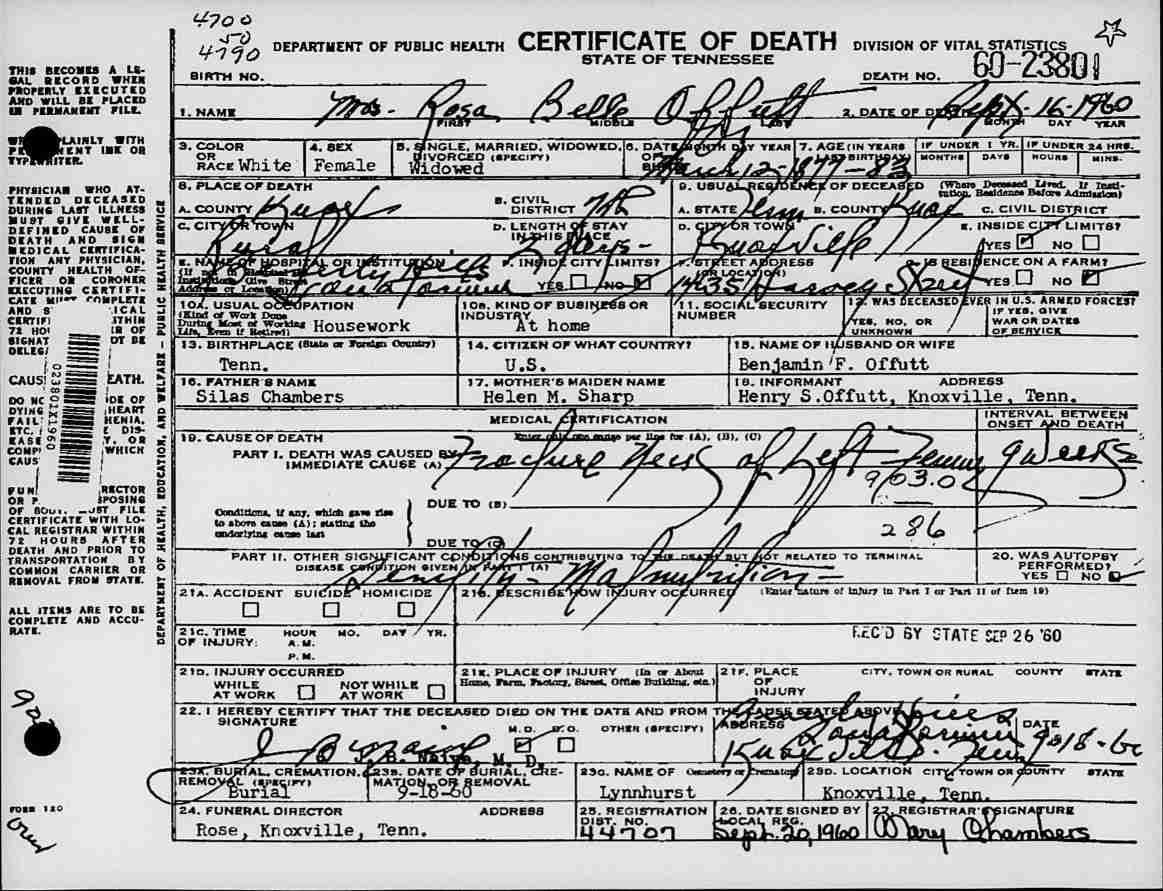 4700
50
4790
DEPARTMENT OF PUBLIC HEALTH CERTIFICATE OF DEATH DIVISION OF VITAL STATISTICS
STATE OF TENNESSEE
BIRTH NO. DEATH NO. 60-23801
1. NAME Mrs. Rosa Belle Offutt 2. DATE OF DEATH Sept. 16-1960
FIRST MIDDLE LAST MONTH DAY YEAR
3. COLOR OR RACE White 4. SEX Female 5. SINGLE, MARRIED, WIDOWED, DIVORCED (SPECIFY) Widowed 6. DATE OF MONTH DAY YEAR March 12-1877 7. AGE (IN YEARS LAST BIRTHDAY) 83 IF UNDER 1 YR. MONTHS DAYS IF UNDER 24 HRS. HOURS MINS.
8. PLACE OF DEATH 9. USUAL RESIDENCE OF DECEASED (Where Deceased Lived. If Institution, Residence Before Admission)
A. COUNTY Knox B. CIVIL DISTRICT 7th A. STATE Tenn B. COUNTY Knox C. CIVIL DISTRICT
C. CITY OR TOWN Rural D. LENGTH OF STAY IN THIS PLACE D. CITY OR TOWN Knoxville E. INSIDE CITY LIMITS? YES NO
E. NAME OF HOSPITAL OR INSTITUTION F. INSIDE CITY LIMITS? YES NO F. STREET ADDRESS (OR LOCATION) 1435 Harvey Street G. IS RESIDENCE ON A FARM? YES NO
10A. USUAL OCCUPATION (Kind of Work Done During Most of Working Life, Even if Retired) Housework 10B. KIND OF BUSINESS OR INDUSTRY At home 11. SOCIAL SECURITY NUMBER 12. WAS DECEASED EVER IN U.S. ARMED FORCES? YES, NO, OR UNKNOWN IF YES, GIVE WAR OR DATES OF SERVICE
13. BIRTHPLACE (State or Foreign Country) 14. CITIZEN OF WHAT COUNTRY? 15. NAME OF HUSBAND OR WIFE
Tenn. U.S. Benjamin F. Offutt
16. FATHER'S NAME 17. MOTHER'S MAIDEN NAME 18. INFORMANT ADDRESS
Silas Chambers Helen M. Sharp Henry S.Offutt, Knoxville, Tenn.
MEDICAL CERTIFICATION INTERVAL BETWEEN ONSET AND DEATH
19. CAUSE OF DEATH Enter only one cause per line for (A), (B), (C)
PART I. DEATH WAS CAUSED BY:
IMMEDIATE CAUSE (A) Fracture Neck of Left Femur 9 weeks
903.0
Conditions, if any, which gave rise to above cause (A); stating the underlying cause last
DUE TO (B)
286
DUE TO (C)
PART II. OTHER SIGNIFICANT CONDITIONS CONTRIBUTING TO THE DEATH BUT NOT RELATED TO TERMINAL
DISEASE CONDITION GIVEN IN PART I (A) Senility - Malnutrition - 20. WAS AUTOPSY PERFORMED? YES NO
21A. ACCIDENT SUICIDE HOMICIDE 21B. DESCRIBE HOW INJURY OCCURRED (Enter nature of injury in Part I or Part II of Item 19)
21C. TIME OF INJURY: HOUR MO. DAY YR.
A.M.
P.M.
REC'D BY STATE SEP 26 '60
21D. INJURY OCCURRED WHILE AT WORK NOT WHILE AT WORK 21E. PLACE OF INJURY (In or About Home, Farm, Factory, Street, Office Building, etc.) 21F. PLACE OF INJURY CITY, TOWN OR RURAL COUNTY STATE
22. I HEREBY CERTIFY THAT THE DECEASED DIED ON THE DATE AND FROM THE CAUSE STATED ABOVE
SIGNATURE M.D. D.O. OTHER (SPECIFY) ADDRESS DATE
Knoxville Tenn 9-18-60
M. D.
23A. BURIAL, CREMATION, REMOVAL (SPECIFY) 23B. DATE OF BURIAL, CREMATION, OR REMOVAL 23C. NAME OF Cemetery or Crematory 23D. LOCATION CITY, TOWN OR COUNTY STATE
Burial 9-18-60 Lynnhurst Knoxville, Tenn.
24. FUNERAL DIRECTOR ADDRESS 25. REGISTRATION DIST. NO. 26. DATE SIGNED BY LOCAL REG. 27. REGISTRAR'S SIGNATURE
Rose, Knoxville, Tenn. 44707 Sept. 20, 1960 Mary Chambers
THIS BECOMES A LEGAL RECORD WHEN
PROPERLY EXECUTED
AND WILL BE PLACED
IN PERMANENT FILE.
PLAINLY WITH
INK OR
TYPEWRITER.
PHYSICIAN WHO ATTENDED DECEASED
DURING LAST ILLNESS
MUST GIVE WELL-DEFINED CAUSE OF
DEATH AND SIGN
MEDICAL CERTIFICATION. ANY PHYSICIAN,
COUNTY HEALTH OFFICER OR CORONER
EXECUTING CERTIFICATE MUST COMPLETE
72
023801X1960
FUN RECTOR
OR P SPOSING
OF BODY MUST FILE
CERTIFICATE WITH LOCAL REGISTRAR WITHIN
72 HOURS AFTER
DEATH AND PRIOR TO
TRANSPORTATION BY
COMMON CARRIER OR
REMOVAL FROM STATE.
ALL ITEMS ARE TO BE
COMPLETE AND ACCURATE.
DEPARTMENT OF HEALTH, EDUCATION, AND WELFARE - PUBLIC HEALTH SERVICE
FORM 120